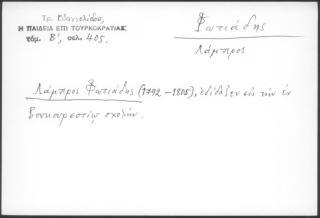 Τρ. Εὐαγγελίδου,
Η ΠΑΙΔΕΙΑ ΕΠΙ ΤΟΥΡΚΟΚΡΑΤΙΑΣ
τόμ. Β', σελ. 405.
Φωτιάδης
Λάμπρος
Λάμπρος Φωτιάδης (1792-1805), ἐδίδαξεν εἰς τὴν ἐν
Βουκουρεστίῳ σχολήν.